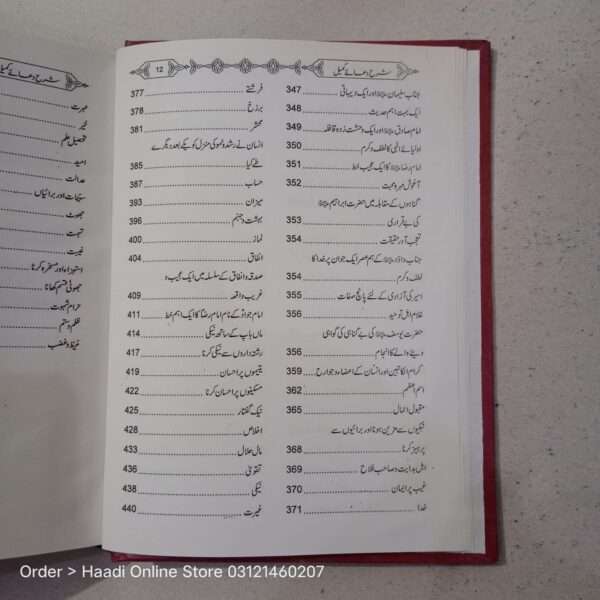 شرح دعائے کمیل
12
جناب سلیمان علیہ السلام اور ایک دیہاتی 347
ایک بہت اہم حدیث 348
امام صادق علیہ السلام اور ایک وحشت زدہ قافلہ 349
اولیائے الٰہی کا لطف و کرم 350
امام رضا علیہ السلام کا ایک عجیب خط 351
آغوش مہر و محبت 352
گناہوں کے مقابلہ میں حضرت ابراہیم علیہ السلام
کی بے قراری 353
تعجب آور حقیقت 354
جناب داؤد علیہ السلام کے ہم عصر ایک جوان پر خدا کا
لطف و کرم 354
اسیر کی آزادی کے لئے پانچ صفات 355
غلام اہل توحید 356
حضرت یوسف علیہ السلام کی بے گناہی کی گواہی
دینے والے کا انجام 356
کرام الکاتبین اور انسان کے اعضاء و جوارح 359
اسم اعظم 362
مقبول اعمال 365
نیکیوں سے مزین ہونا اور برائیوں سے
پرہیز کرنا 368
اہل ہدایت و صاحب فلاح 369
غیب پر ایمان 370
خدا 371
فرشتے 377
برزخ 378
محشر 381
انسان نے رشد و نمو کی منزل کو یکے بعد دیگرے
طے کیا 385
حساب 387
میزان 393
بہشت و جہنم 396
نماز 400
انفاق 404
صدقہ و انفاق کے سلسلہ میں ایک عجیب و
غریب واقعہ 409
امام جواد کے نام امام رضا کا ایک اہم خط 411
ماں باپ کے ساتھ نیکی 414
رشتہ داروں سے نیکی کرنا 417
یتیموں پر احسان 419
مسکینوں پر احسان کرنا 422
نیک گفتار 425
اخلاص 428
مال حلال 433
تقویٰ 436
نیکی 438
غیرت 440
شرح دعائے کمیل
عبرت
خیر
تحصیل علم
امید
عدالت
سیئات اور برائیاں
جھوٹ
تہمت
غیبت
استہزاء اور مسخرہ کرنا
جھوٹی قسم کھانا
حرام شہوت
ظلم و ستم
غیظ و غضب
Order > Haadi Online Store 03121460207